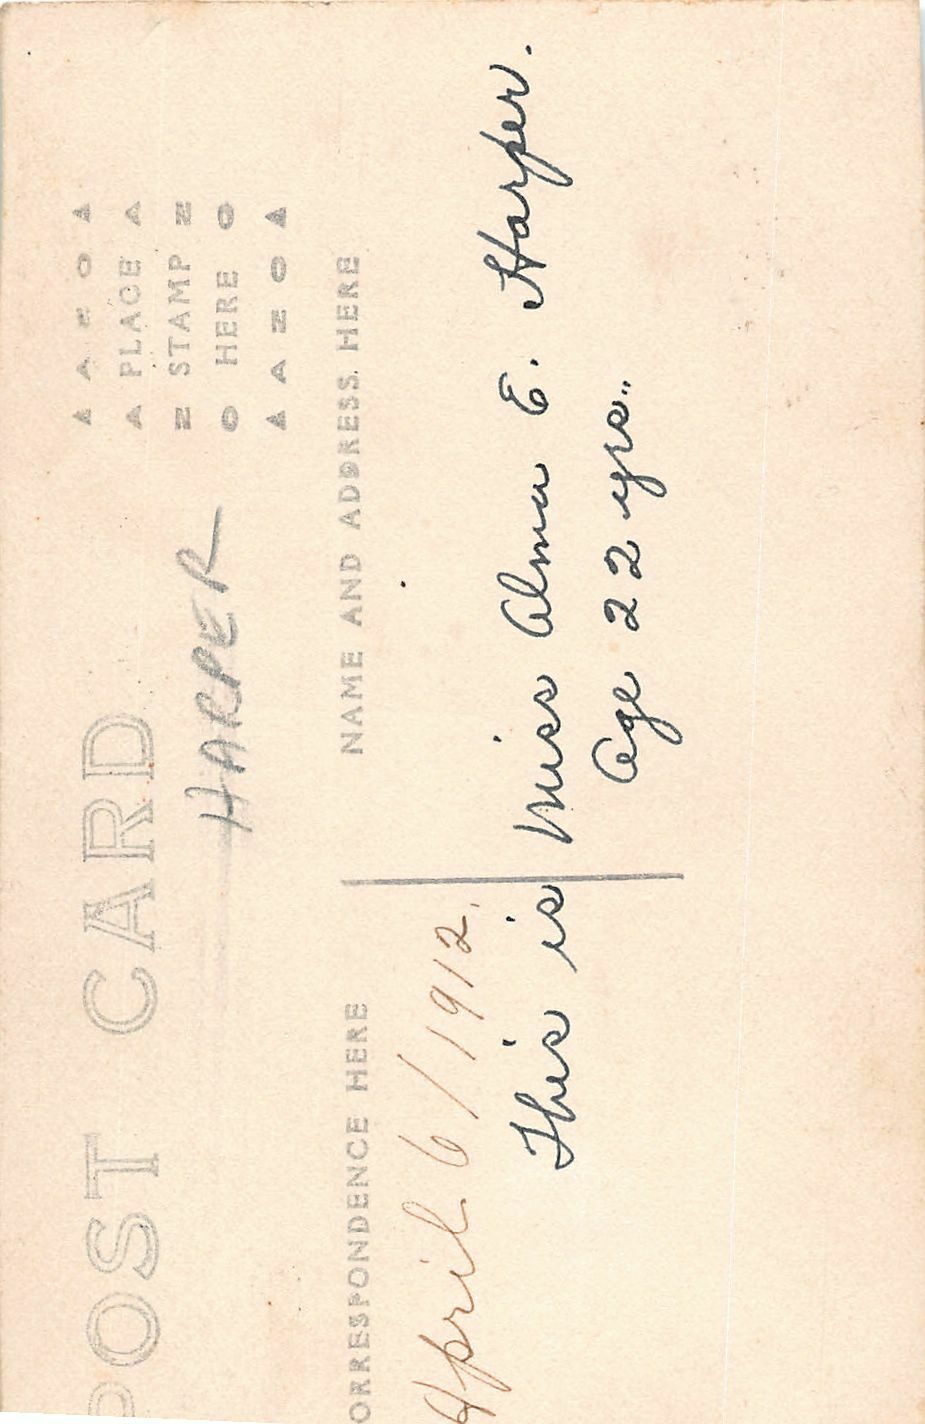 POST CARD
HARPER
▲ A Z O ▲
▲ PLACE ▲
Z STAMP Z
O HERE O
▲ A Z O ▲
ORRESPONDENCE HERE
NAME AND ADDRESS HERE
April 6/1912.
This is Miss Alma E. Harper.
Age 22 yrs..